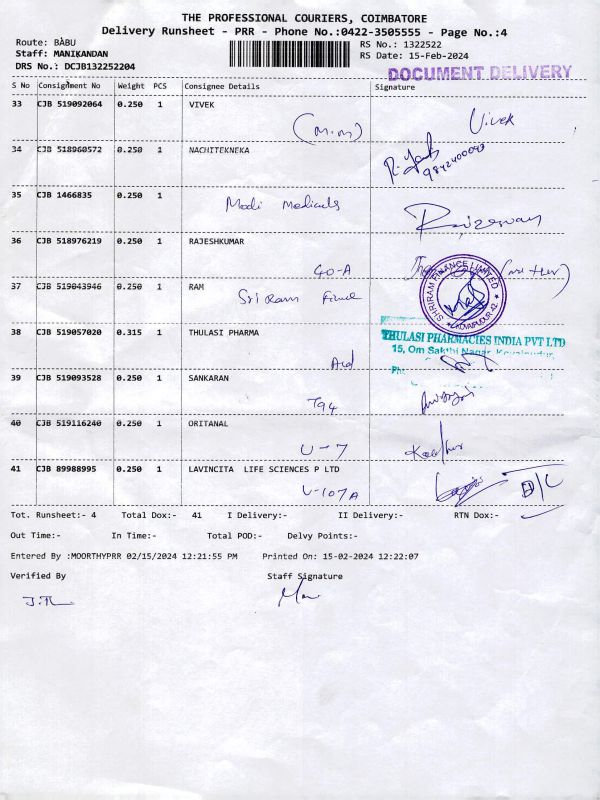 THE PROFESSIONAL COURIERS, COIMBATORE
Delivery Runsheet - PRR - Phone No.:0422-3505555 - Page No.:4
Route: BABU
RS No.: 1322522
Staff: MANIKANDAN
RS Date: 15-Feb-2024
DRS No.: DCJB132252204
DOCUMENT DELIVERY
S No Consignment No Weight PCS Consignee Details Signature
33 CJB 519092064 0.250 1 VIVEK
(M.M) Vivek
34 CJB 518960572 0.250 1 NACHITEKNEKA
35 CJB 1466835 0.250 1
Modi Medicals
36 CJB 518976219 0.250 1 RAJESHKUMAR
40-A
37 CJB 519043946 0.250 1 RAM
Sriram
SHRIRAM FINANCE LIMITED
38 CJB 519057020 0.315 1 THULASI PHARMA
THULASI PHARMACIES INDIA PVT LTD
15, Om Sakthi Nagar,
Ph:
39 CJB 519093528 0.250 1 SANKARAN
T94
40 CJB 519116240 0.250 1 ORITANAL
U-7
41 CJB 89988995 0.250 1 LAVINCITA LIFE SCIENCES P LTD
U-107A
Tot. Runsheet:- 4 Total Dox:- 41 I Delivery:- II Delivery:- RTN Dox:-
Out Time:- In Time:- Total POD:- Delvy Points:-
Entered By :MOORTHYPRR 02/15/2024 12:21:55 PM Printed On: 15-02-2024 12:22:07
Verified By Staff Signature